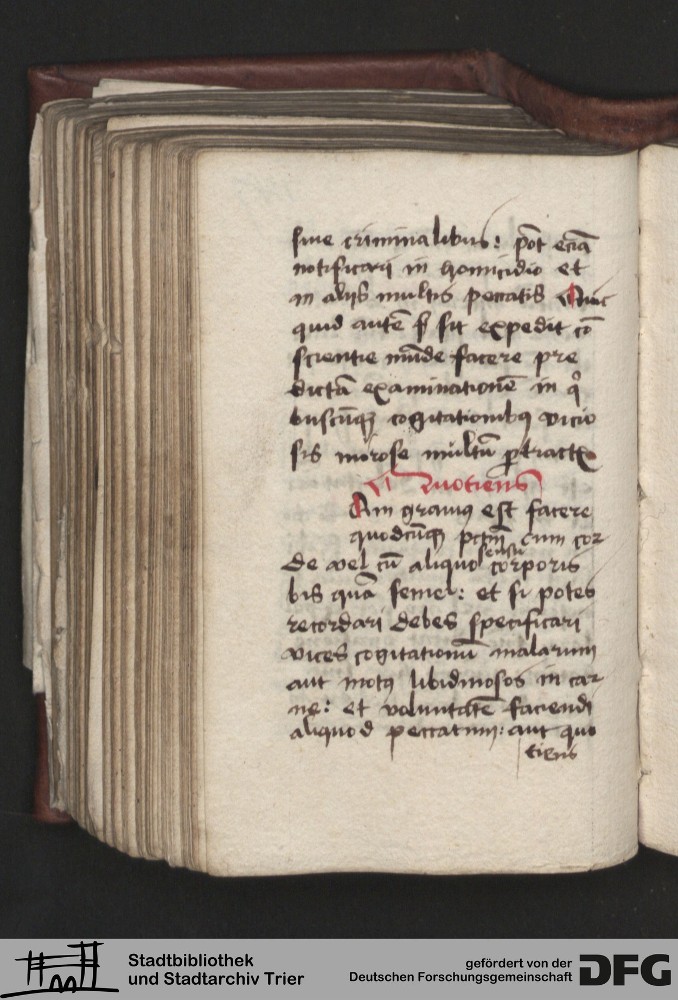 siue criminalibus: pōt eciā
notificari in homicidio et
in alijs multis peccatis Quic
quid autē sit expedit cō
scientie mūde facere pre
dictā examinationē in q
buscūqꝫ cogitationibꝯ vicio
sis morose multū ꝑtractꝭ
Quotiens
Am grauiꝯ est facere
quodcūqꝫ pctm̄ cum cor
de vel cū aliquo sensu corporis
bis quā semel: et si potes
recordari debes specificari
vices cogitationū malarum
aut motꝯ libidinosos in car
ne: et voluntatē faciendi
aliquod peccatum: aut quo
tiens
Stadtbibliothek
und Stadtarchiv Trier
gefördert von der
Deutschen Forschungsgemeinschaft
DFG